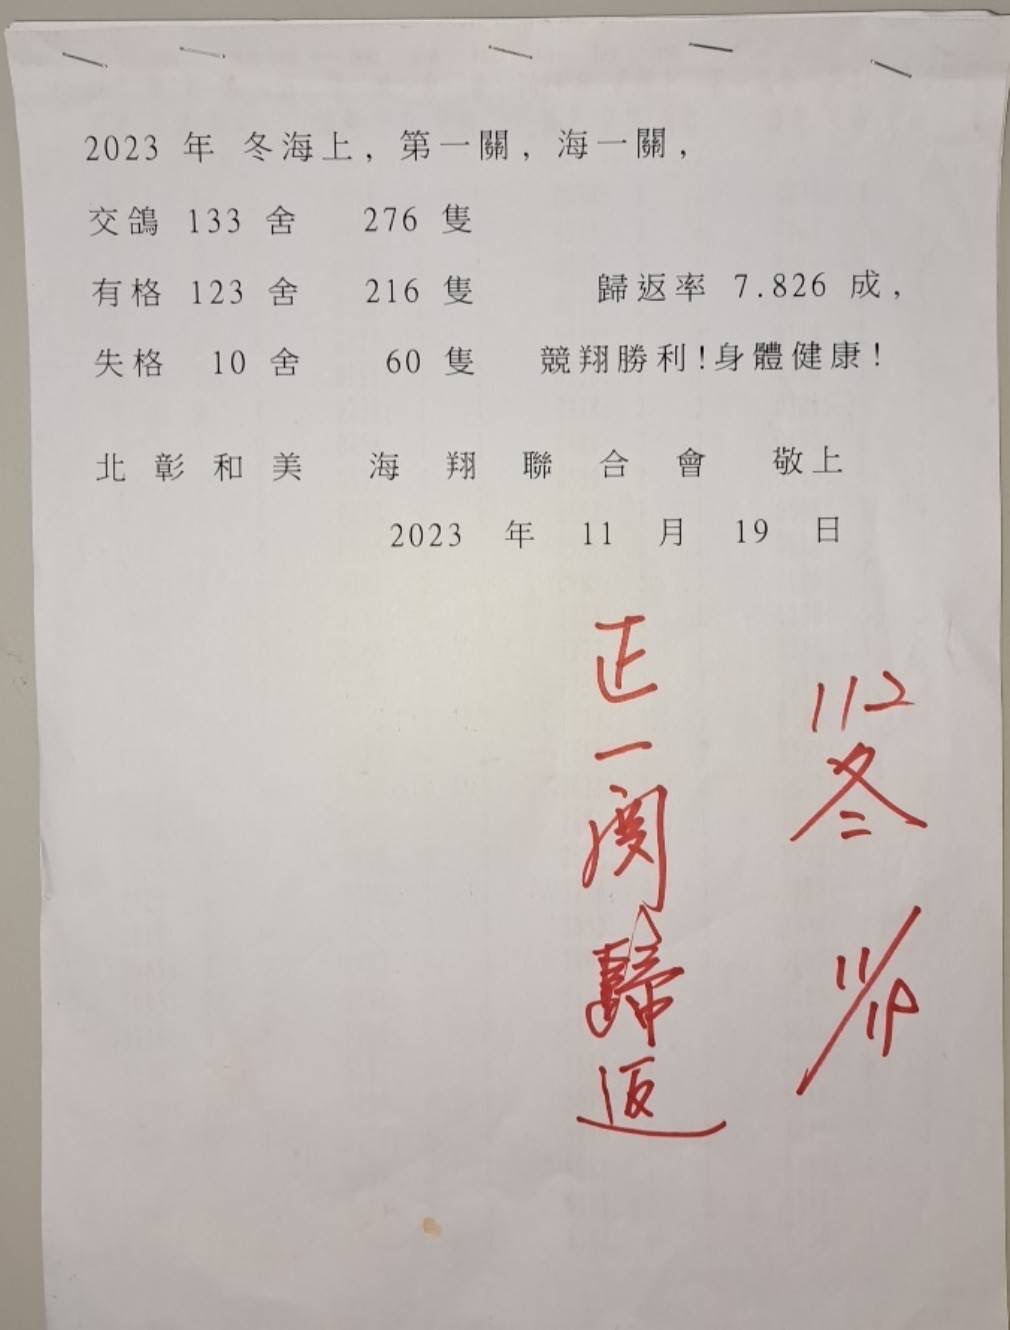 2023 年 冬海上, 第一關, 海一關,
交鴿 133 舍 276 隻
有格 123 舍 216 隻 歸返率 7.826 成,
失格 10 舍 60 隻 競翔勝利!身體健康!
北彰和美 海翔聯合會 敬上
2023 年 11 月 19 日
112
冬
11/19
正一関歸返